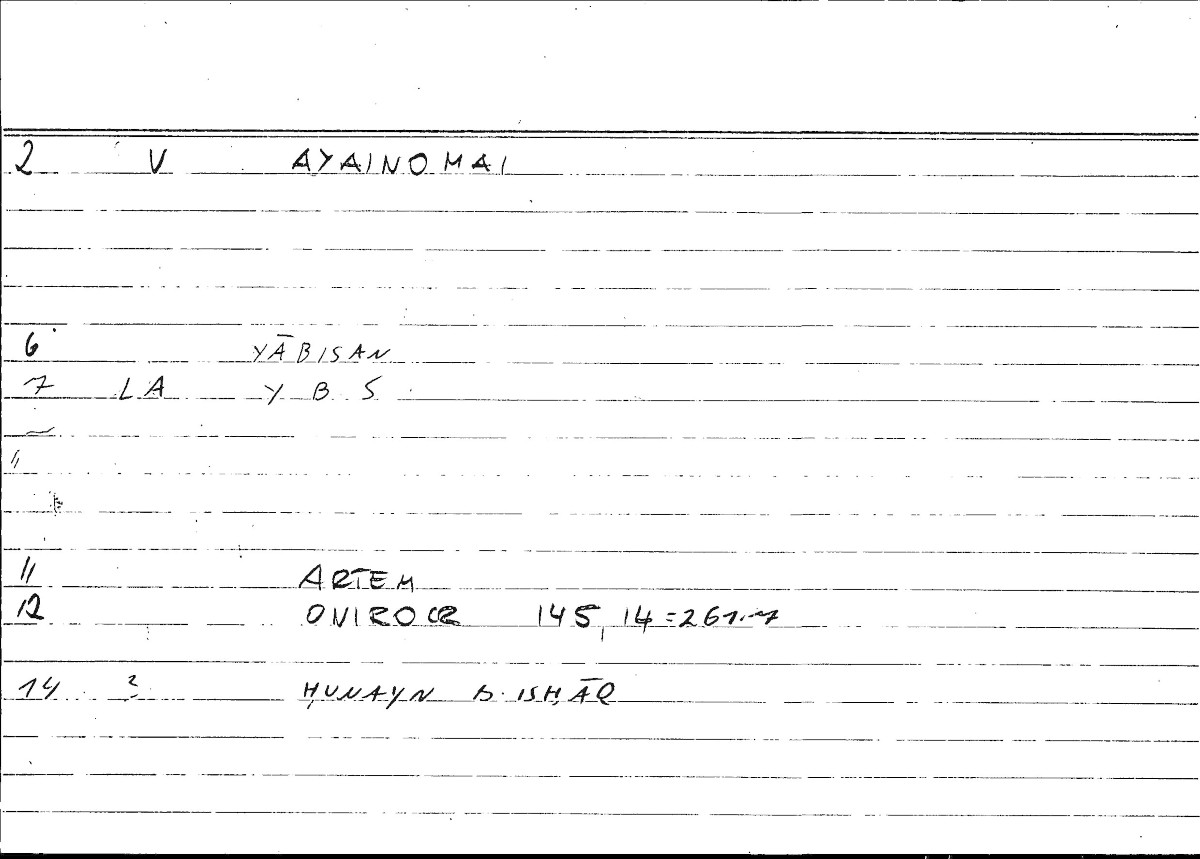 2 V AYAINOMAI
6 YĀBISAN
7 LA Y B S
11
11 ARTEM
12 ONIROCR 145,14=261.7
14 2 ḤUNAYN B. ISḤĀQ